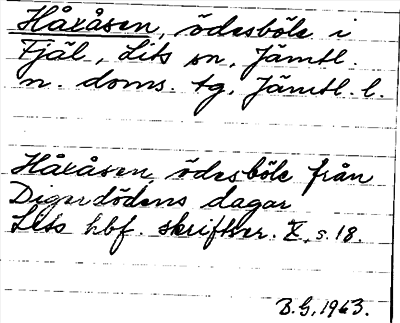 Håxåsen, ödesböle i
Fjäl, Lits sn, Jämtl.
n. doms. tg, Jämtl. l.
Håxåsen ödesböle från
Digerdödens dagar
Lits hbf. skrifter. X, s. 18.
B.G, 1963.